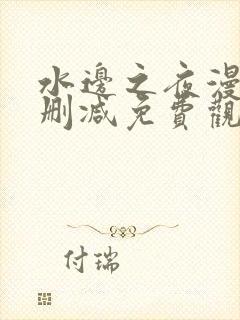 水邊之夜漫
刪減免費觀
付瑞